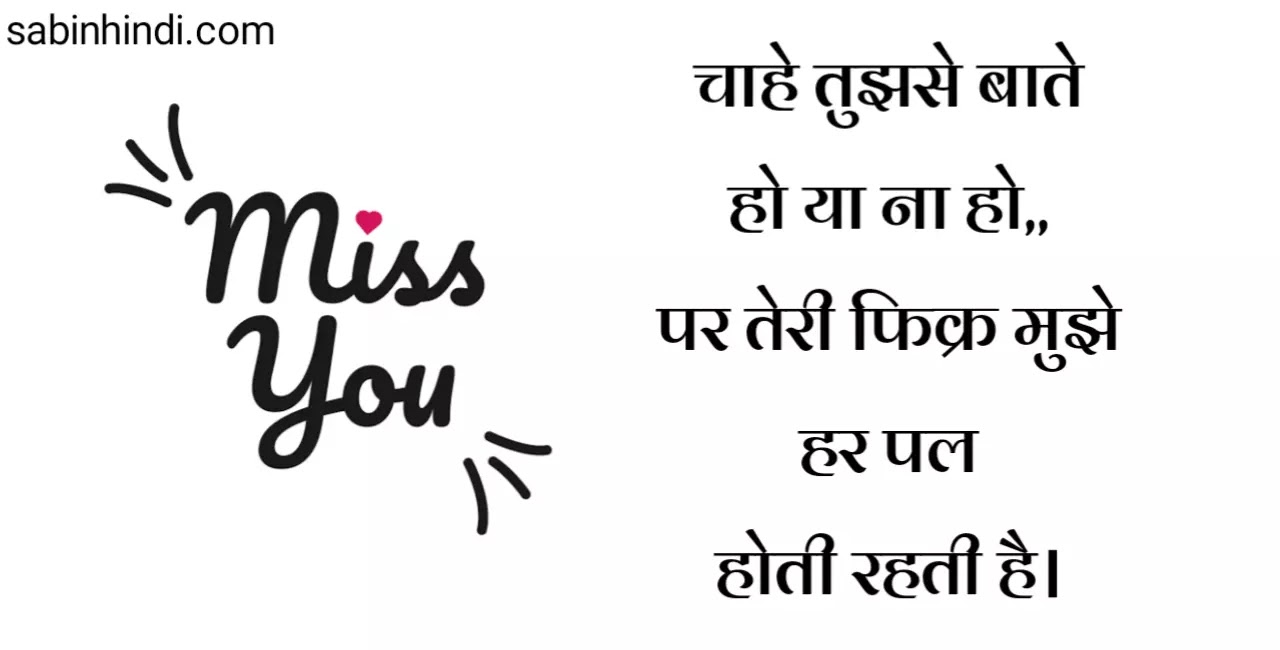 sabinhindi.com
Miss
You
चाहे तुझसे बाते
हो या ना हो,,
पर तेरी फिक्र मुझे
हर पल
होती रहती है।